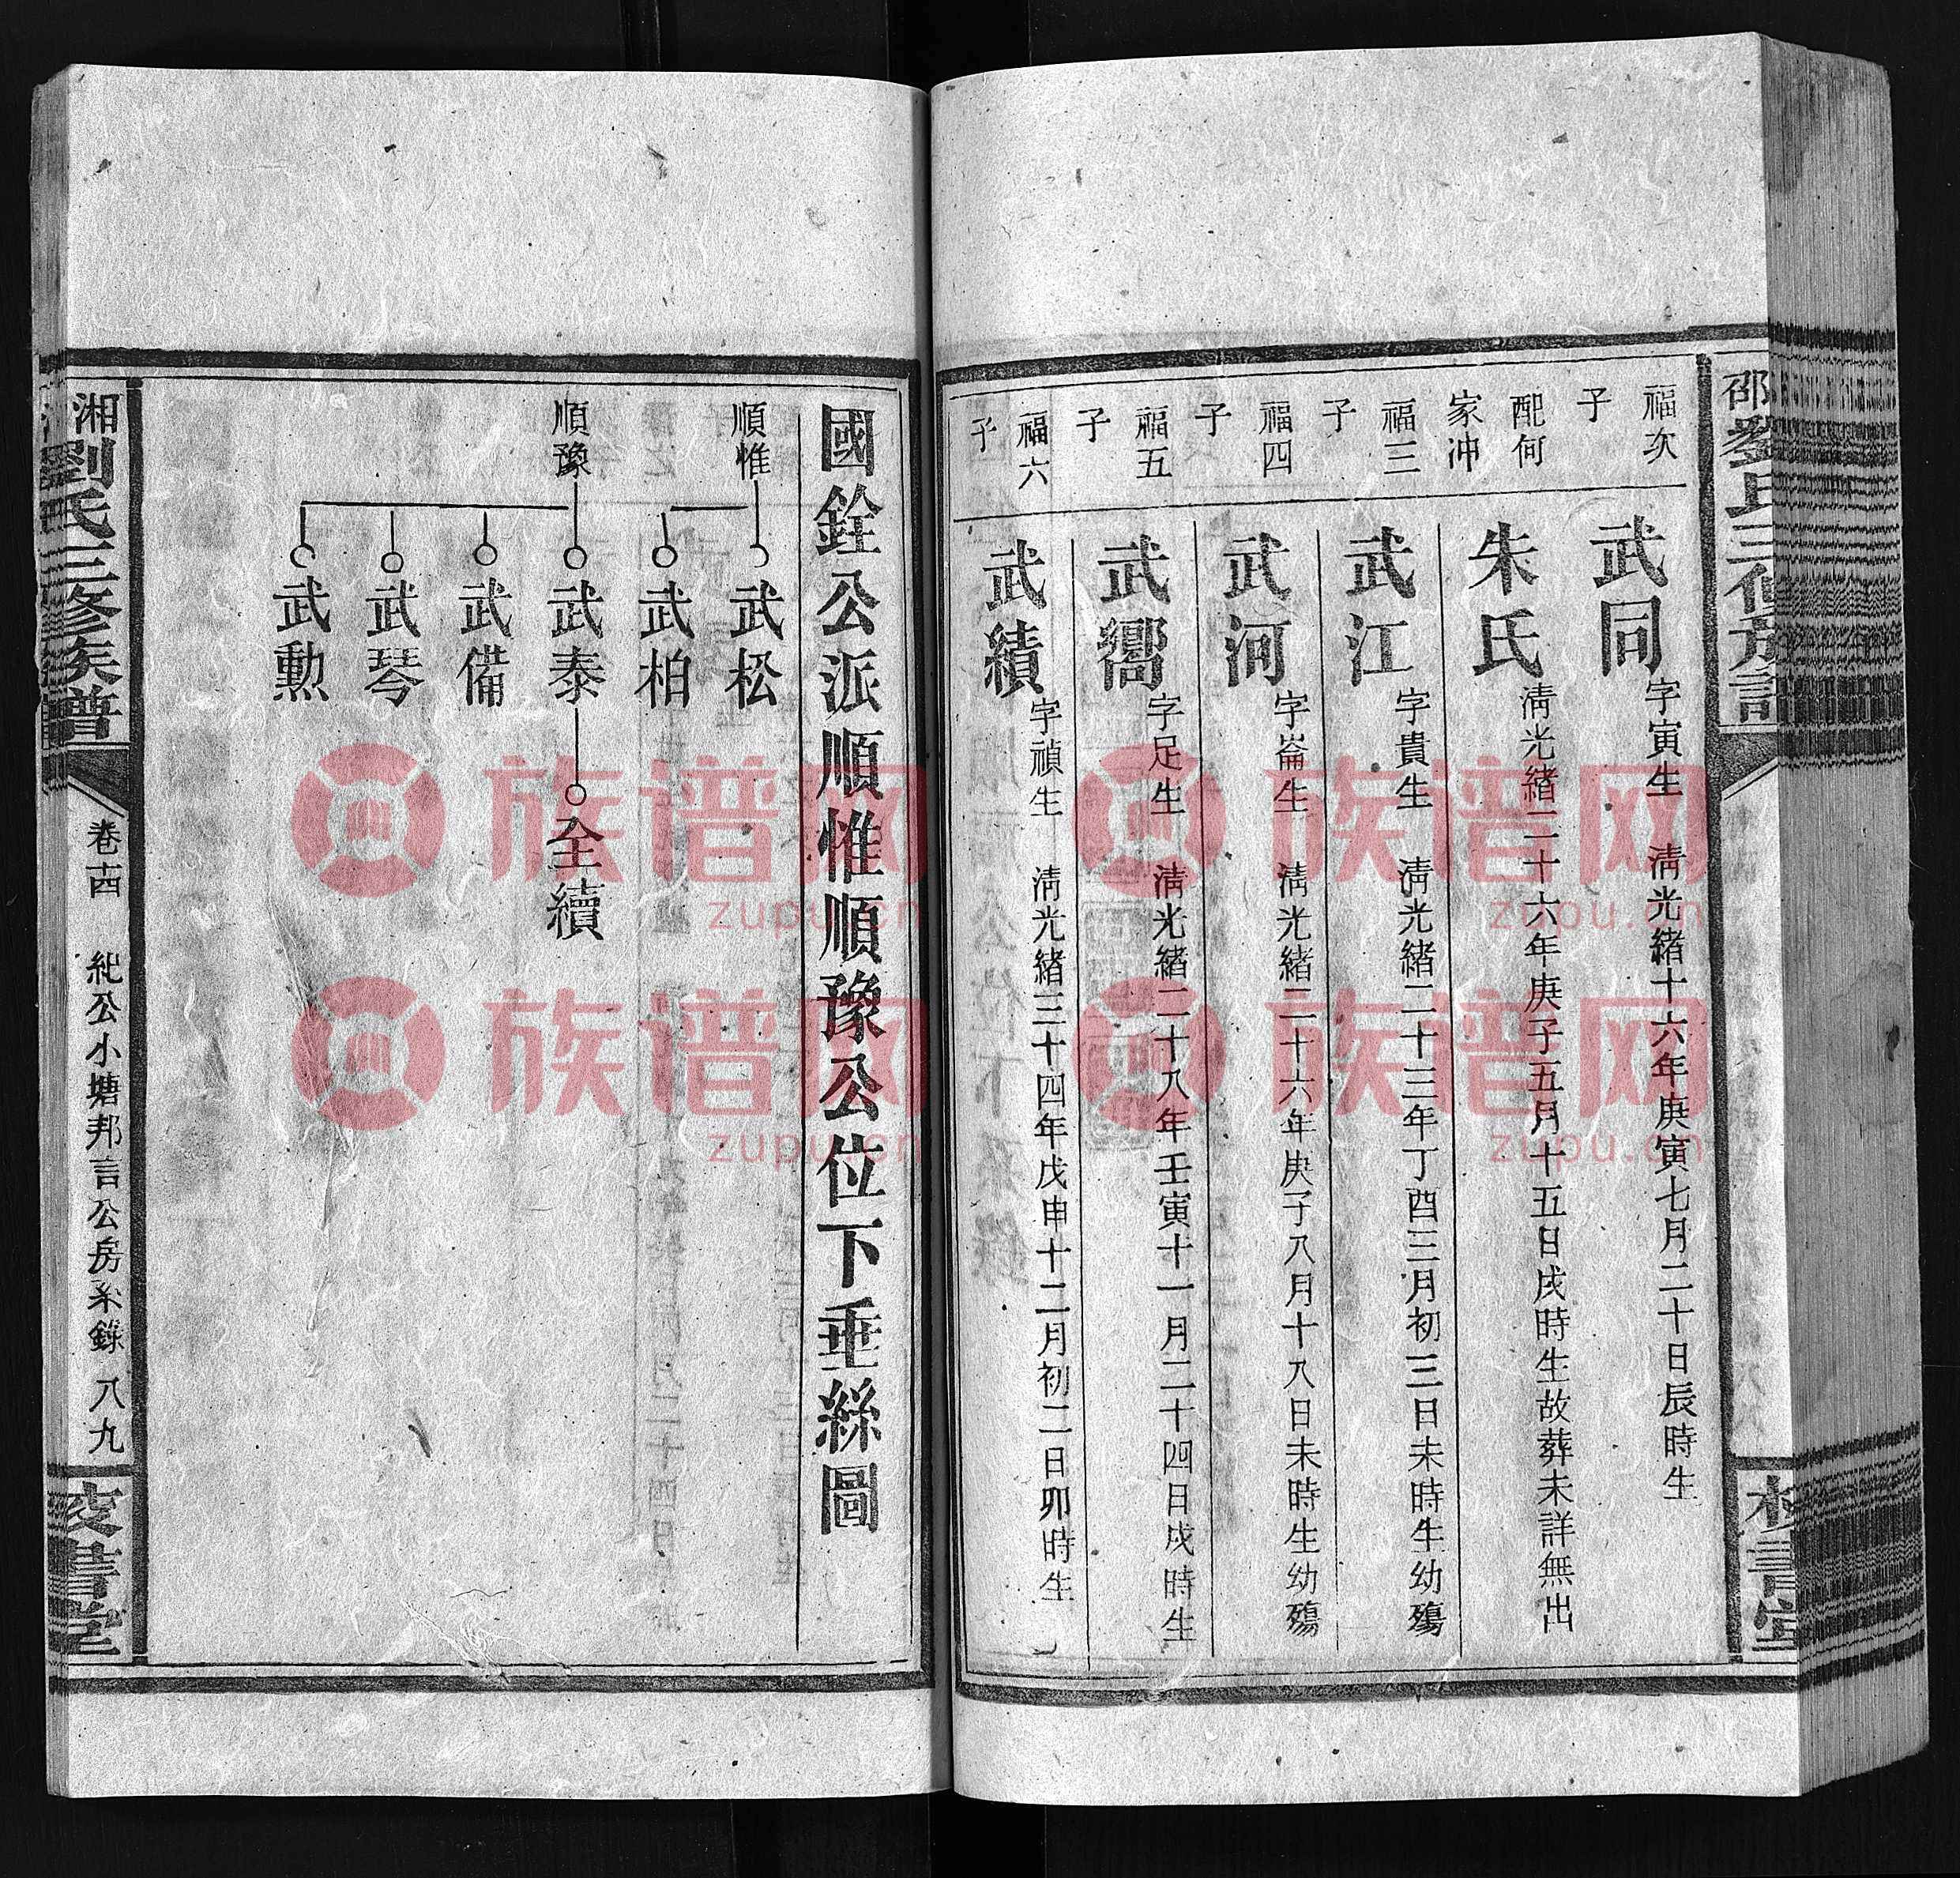 福次子
武同 字寅生 淸光緒十六年庚寅七月二十日辰時生
配何家冲
朱氏 淸光緒二十六年庚子五月十五日戌時生故葬未詳無出
福三子
武江 字貴生 淸光緒二十三年丁酉三月初三日未時生幼殤
福四子
武河 字崙生 淸光緒二十六年庚子八月十八日未時生幼殤
福五子
武嚮 字足生 淸光緒二十八年壬寅十一月二十四日戌時生
福六子
武績 字禎生 淸光緒三十四年戊申十二月初二日卯時生
國銓公派順惟順豫公位下垂絲圖
順惟
武松
武柏
順豫
武泰
全續
武備
武琴
武勲
湘劉氏三修族譜
卷十四 紀公小塘邦言公房系錄 八九
族谱网
zupu.cn
族谱网
zupu.cn
族谱网
zupu.cn
族谱网
zupu.cn